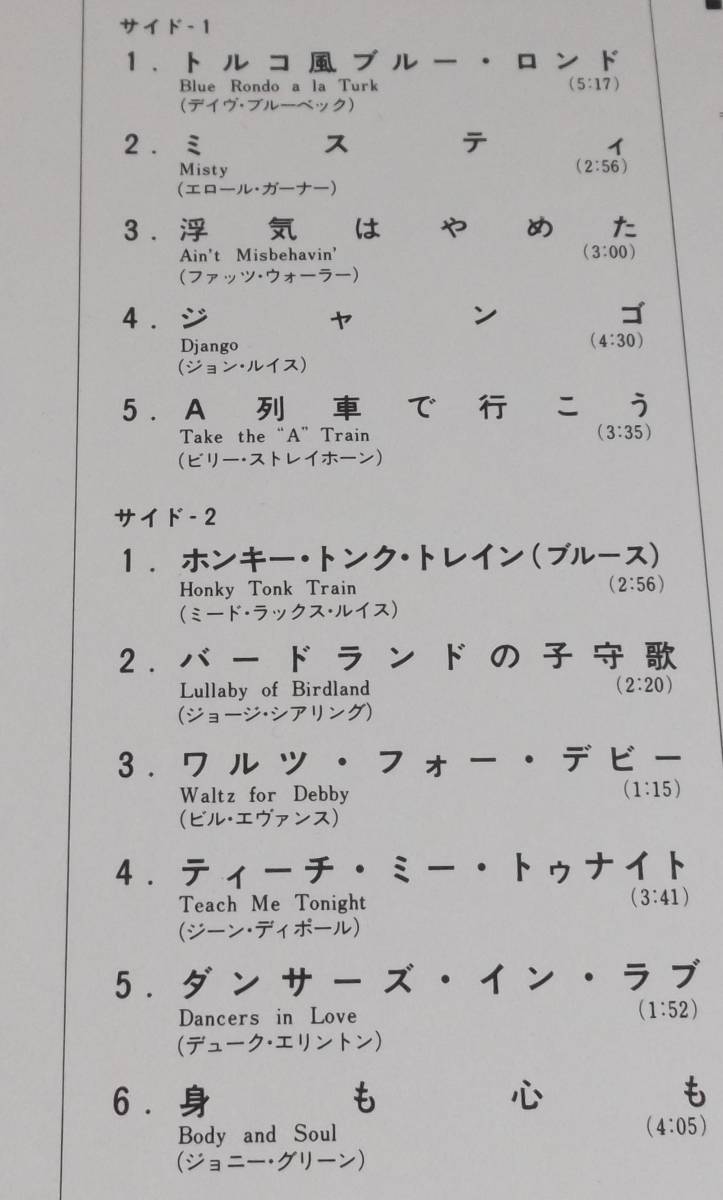 サイド-1
1. トルコ風ブルー・ロンド
Blue Rondo a la Turk (5:17)
(デイヴ・ブルーベック)
2. ミスティ
Misty (2:56)
(エロール・ガーナー)
3. 浮気はやめた
Ain't Misbehavin' (3:00)
(ファッツ・ウォーラー)
4. ジャンゴ
Django (4:30)
(ジョン・ルイス)
5. A列車で行こう
Take the "A" Train (3:35)
(ビリー・ストレイホーン)
サイド-2
1. ホンキー・トンク・トレイン(ブルース)
Honky Tonk Train (2:56)
(ミード・ラックス・ルイス)
2. バードランドの子守歌
Lullaby of Birdland (2:20)
(ジョージ・シアリング)
3. ワルツ・フォー・デビー
Waltz for Debby (1:15)
(ビル・エヴァンス)
4. ティーチ・ミー・トゥナイト
Teach Me Tonight (3:41)
(ジーン・ディポール)
5. ダンサーズ・イン・ラブ
Dancers in Love (1:52)
(デューク・エリントン)
6. 身も心も
Body and Soul (4:05)
(ジョニー・グリーン)